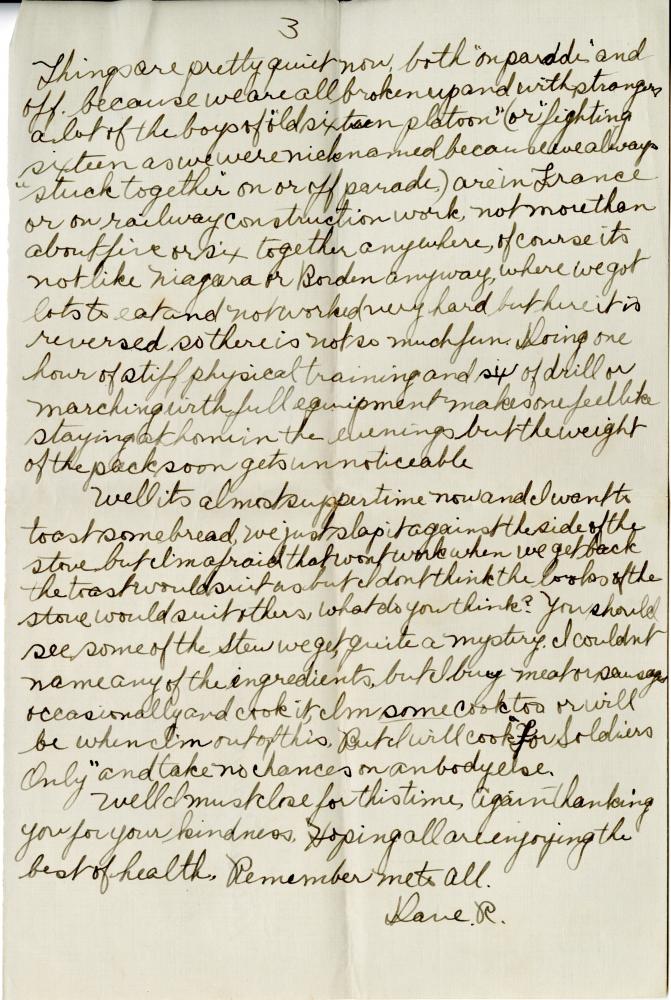 3
Things are pretty quiet now, both "on parade" and
off. because we are all broken up and with strangers
a lot of the boys of "old sixteen platoon" (or "fighting
sixteen as we were nicknamed because we always
"stuck together" on or off parade,) are in France
or on railway construction work, not more than
about five or six together anywhere, of course its
not like Niagara or Borden anyway, where we got
lots to eat and not worked very hard but here it is
reversed, so there is not so much fun. Doing one
hour of stiff physical training and six of drill or
marching with full equipment makes one feel like
staying at home in the evenings, but the weight
of the pack soon gets unnoticeable
Well its almost supper time now and I want to
toast some bread, we just slap it against the side of the
stove but I'm afraid that wont work when we get back
the toast would suit us but I dont think the looks of the
stove would suit others, what do you think? You should
see some of the stew we get, quite a mystery. I couldn't
name any of the ingredients, but I buy meat or sausages
occasionally and cook it, I'm some cook too or will
be when I'm out of this. But I will cook "For Soldiers
Only" and take no chances on anbody else.
Well I must close for this time, again thanking
you for your kindness, Hoping all are enjoying the
best of health. Remember me to all.
Dave. R.